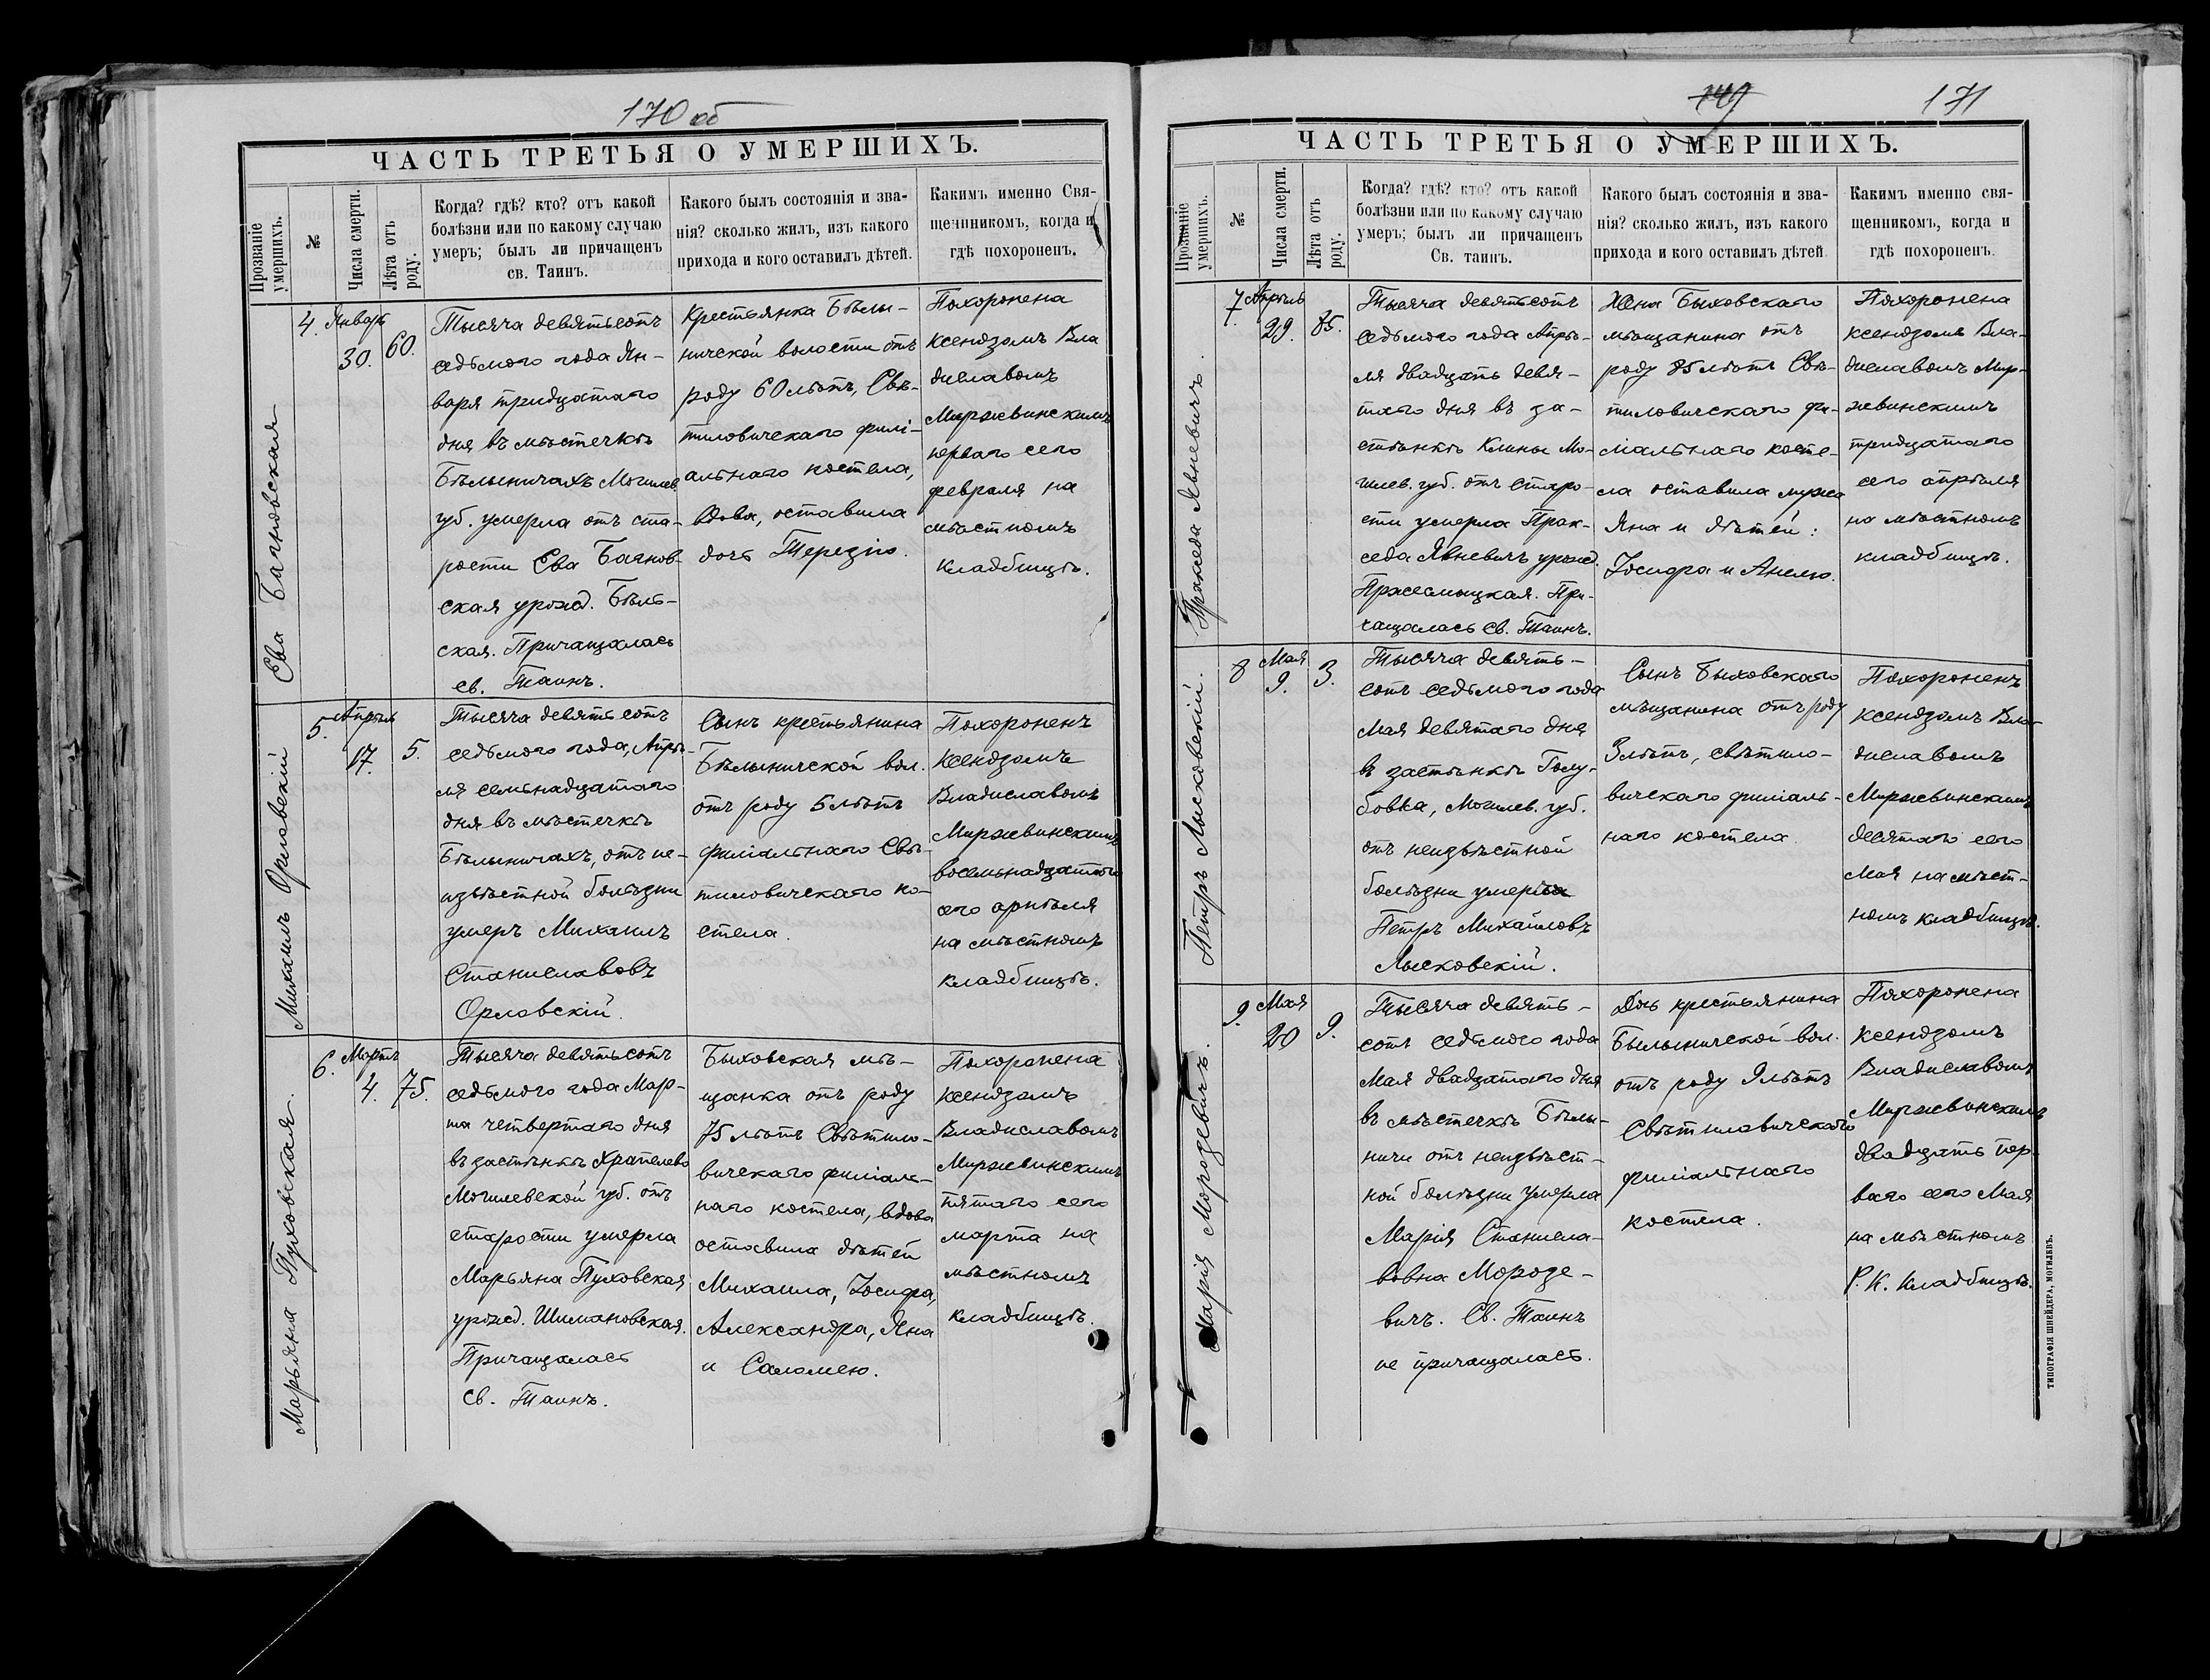 170 об
ЧАСТЬ ТРЕТЬЯ О УМЕРШИХЪ.
Прозваніе умершихъ.
№
Числа смерти.
Лѣта отъ роду.
Когда? гдѣ? кто? отъ какой
болѣзни или по какому случаю
умеръ; былъ ли причащенъ
св. Таинъ.
Какого былъ состоянія и зва-
нія? сколько жилъ, изъ какого
прихода и кого оставилъ дѣтей.
Какимъ именно Свя-
щенникомъ, когда и
гдѣ похороненъ.
Ева Багновская
4.
Январь
30.
60.
Тысяча девятьсотъ
седьмого года Ян-
варя тридцатаго
дня въ мѣстечкѣ
Бѣлыничахъ Могилев.
губ. умерла отъ ста-
рости Ева Багнов-
ская урожд. Бѣль-
ская. Причащалась
св. Таинъ.
Крестьянка Бѣлы-
ничской волости отъ
роду 60 лѣтъ, Свѣ-
тиловичскаго филі-
альнаго костела,
вдова, оставила
дочь Терезію.
Похоронена
ксендзомъ Вла
диславомъ
Миржвинскимъ
перваго сего
февраля на
мѣстномъ
кладбищѣ.
Михаилъ Орловскій
5.
Апрѣль
17.
5.
Тысяча девятьсотъ
седьмого года, Апрѣ-
ля семнадцатаго
дня въ мѣстечкѣ
Бѣлыничахъ, отъ не-
извѣстной болѣзни
умеръ Михаилъ
Станиславовъ
Орловскій.
Сынъ крестьянина
Бѣлыничской вол.
отъ роду 5 лѣтъ
филіальнаго Свѣ-
тиловичскаго ко-
стела.
Похороненъ
ксендзомъ
Владиславомъ
Миржвинскимъ
восемьнадцатаго
сего апрѣля
на мѣстномъ
кладбищѣ.
Марьяна Пуховская.
6.
Мартъ
4.
75.
Тысяча девятьсотъ
седьмого года Мар-
та четвертаго дня
въ застѣнкѣ Храпелево
Могилевской губ. отъ
старости умерла
Марьяна Пуховская
урожд. Шимановская.
Причащалась
Св. Таинъ.
Быховская мѣ-
щанка отъ роду
75 лѣтъ Свѣтило-
вичскаго филіаль-
наго костела, вдова
оставила дѣтей
Михаила, Іосифа,
Александра, Яна
и Саломею.
Похоронена
ксендзомъ
Владиславомъ
Миржвинскимъ
пятаго сего
марта на
мѣстномъ
кладбищѣ.
149
171
ЧАСТЬ ТРЕТЬЯ О УМЕРШИХЪ.
Прозваніе умершихъ.
№
Числа смерти.
Лѣта отъ роду.
Когда? гдѣ? кто? отъ какой
болѣзни или по какому случаю
умеръ; былъ ли причащенъ
Св. таинъ.
Какого былъ состоянія и зва-
нія? сколько жилъ, изъ какого
прихода и кого оставилъ дѣтей
Какимъ именно свя-
щенникомъ, когда и
гдѣ похороненъ.
Праксeда Явневичъ.
7.
Апрѣль
29.
85.
Тысяча девятьсотъ
седьмого года Апрѣ-
ля двадцать девя-
таго дня въ за-
стѣнкѣ Клины Мо-
гилев. губ. отъ старо-
сти умерла Прак-
седа Явневичъ урожд.
При-
чащалась Св. Таинъ.
Жена Быховскаго
мѣщанина отъ
роду 85 лѣтъ Свѣ-
тиловичскаго фи-
ліальнаго косте-
ла оставила мужа
Яна и дѣтей:
Іосифа и Анелю.
Похоронена
ксендзомъ Вла-
диславомъ Мир-
жвинскимъ
тридцатаго
сего апрѣля
на мѣстномъ
кладбищѣ.
Петръ Лысковскій.
8
Мая
9.
3.
Тысяча девять-
сотъ седьмого года
Мая девятаго дня
въ застѣнкѣ Голу-
бовка, Могилев. губ.
отъ неизвѣстной
болѣзни умеръ
Петръ Михайловъ
Лысковскій.
Сынъ Быховскаго
мѣщанина отъ роду
3 лѣтъ, свѣтило-
вичскаго филіаль-
наго костела.
Похороненъ
ксендзомъ Вла-
диславомъ
Миржвинскимъ
девятаго сего
Мая на мѣст-
номъ кладбищѣ.
Марія Морозевичъ.
9.
Мая
20
9.
Тысяча девять-
сотъ седьмого года
Мая двадцатаго дня
въ мѣстечкѣ Бѣлы-
ничи отъ неизвѣст-
ной болѣзни умерла
Марія Станисла-
вовна Морозе-
вичъ. Св. Таинъ
не причащалась.
Дочь крестьянина
Бѣлыничской вол.
отъ роду 9 лѣтъ
Свѣтиловичскаго
филіальнаго
костела.
Похоронена
ксендзомъ
Владиславомъ
Миржвинскимъ
двадцать пер-
ваго сего Мая
на мѣстномъ
Р. К. кладбищѣ.
ТИПОГРАФІЯ ШНЕЙДЕРА, МОГИЛЕВЪ.